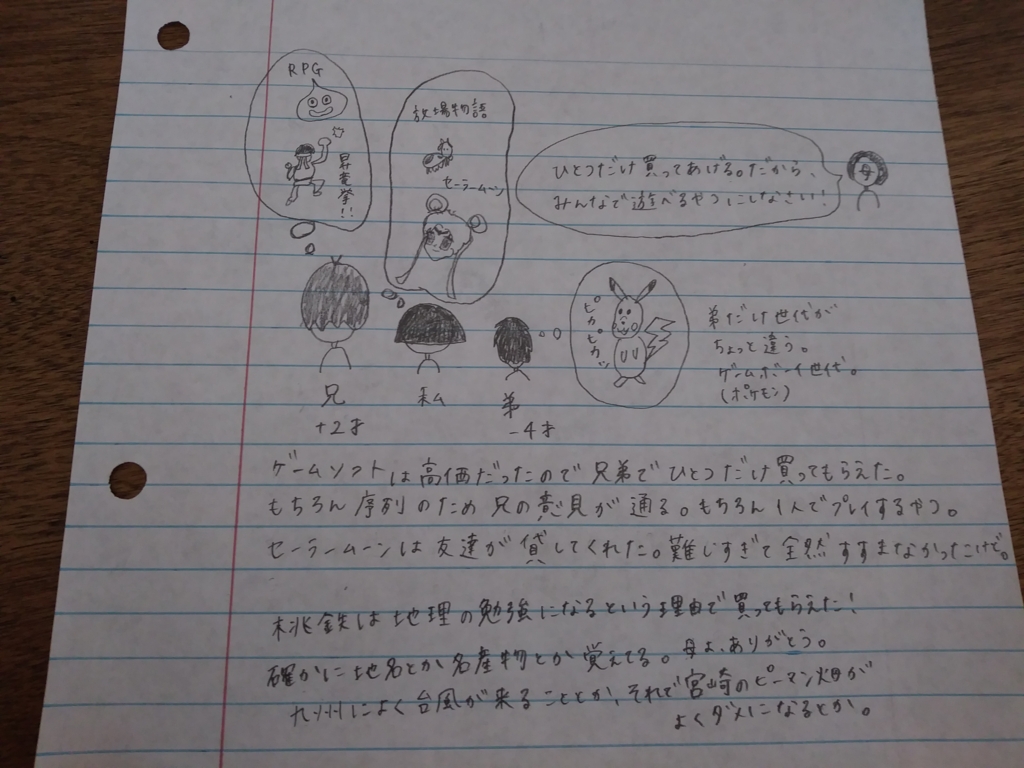 RPG
昇竜拳!!
牧場物語
セーラームーン
ひとつだけ買ってあげる。だから、
みんなで遊べるやつにしなさい!
母
ピカピカッ
弟だけ世代が
ちょっと違う。
ゲームボーイ世代。
(ポケモン)
兄
+2才
私
弟
-4才
ゲームソフトは高価だったので兄弟でひとつだけ買ってもらえた。
もちろん序列のため兄の意見が通る。もちろん1人でプレイするやつ。
セーラームーンは友達が貸してくれた。難しすぎて全然すすまなかったけど。
桃鉄は地理の勉強になるという理由で買ってもらえた!
確かに地名とか名産物とか覚えてる。母よ、ありがとう。
九州によく台風が来ることとか、それで宮崎のピーマン畑が
よくダメになるとか。